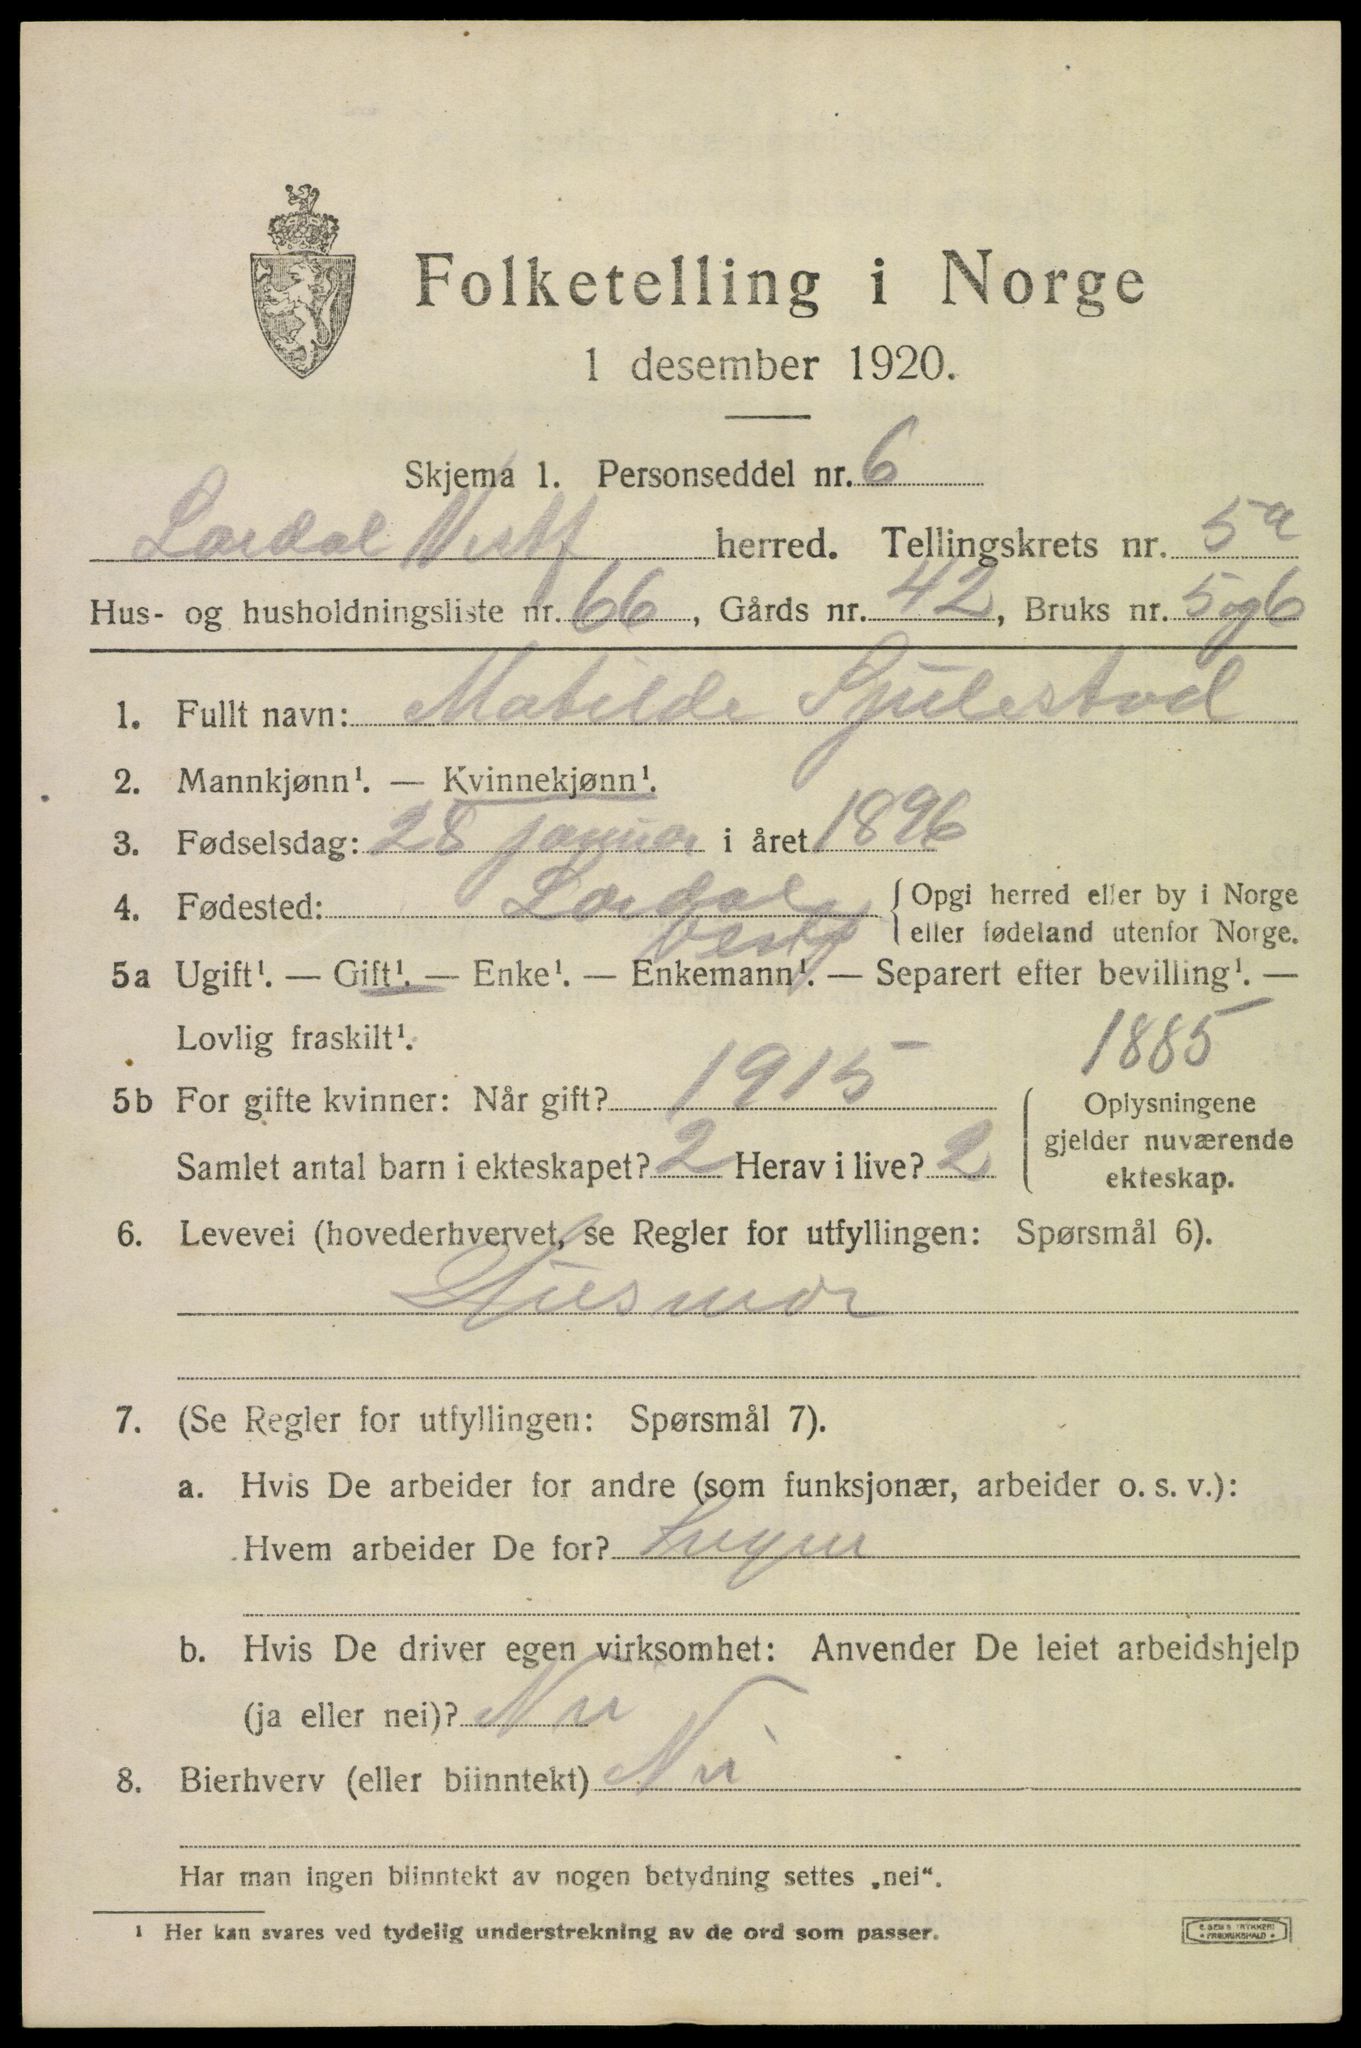 Folketelling i Norge
1 desember 1920.
Skjema 1. Personseddel nr. 6
Lardal Vestf herred. Tellingskrets nr. 5a
Hus- og husholdningsliste nr. 66, Gårds nr. 42, Bruks nr. 5 og 6
1. Fullt navn: Matilde Gjulestad
2. Mannkjønn¹. — Kvinnekjønn¹.
3. Fødselsdag: 28 januar i året 1896
4. Fødested: Lardal Vestf { Opgi herred eller by i Norge
eller fødeland utenfor Norge.
5a Ugift¹. — Gift¹. — Enke¹. — Enkemann¹. — Separert efter bevilling¹. —
Lovlig fraskilt¹.
1885
5b For gifte kvinner: Når gift? 1915
Samlet antal barn i ekteskapet? 2 Herav i live? 2
{ Oplysningene
gjelder nuværende
ekteskap.
6. Levevei (hovederhvervet, se Regler for utfyllingen: Spørsmål 6).
Husmor
7. (Se Regler for utfyllingen: Spørsmål 7).
a. Hvis De arbeider for andre (som funksjonær, arbeider o. s. v.):
Hvem arbeider De for? Ingen
b. Hvis De driver egen virksomhet: Anvender De leiet arbeidshjelp
(ja eller nei)? Nei
8. Bierhverv (eller biinntekt) Nei
Har man ingen biinntekt av nogen betydning settes „nei“.
¹ Her kan svares ved tydelig understrekning av de ord som passer.
E. SEMS TRYKKERI
• FREDRIKSHALD •